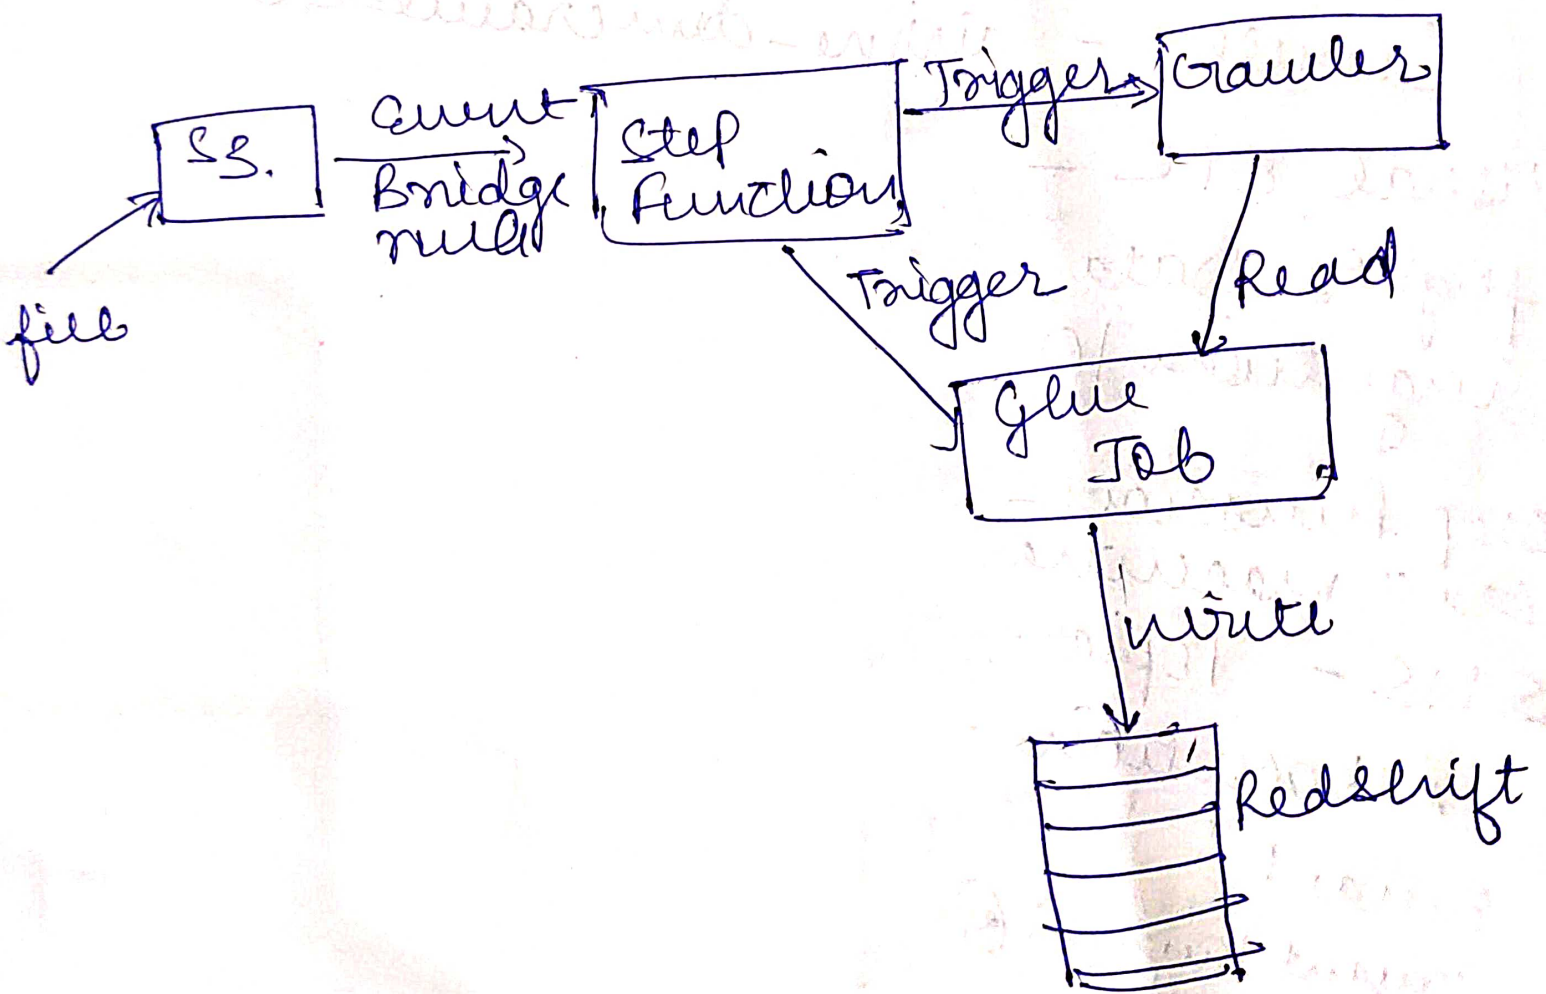 file
S3.
Event
Bridge
rule
Step
Function
Trigger
Crawler
Trigger
Read
Glue
Job
Write
Redshift